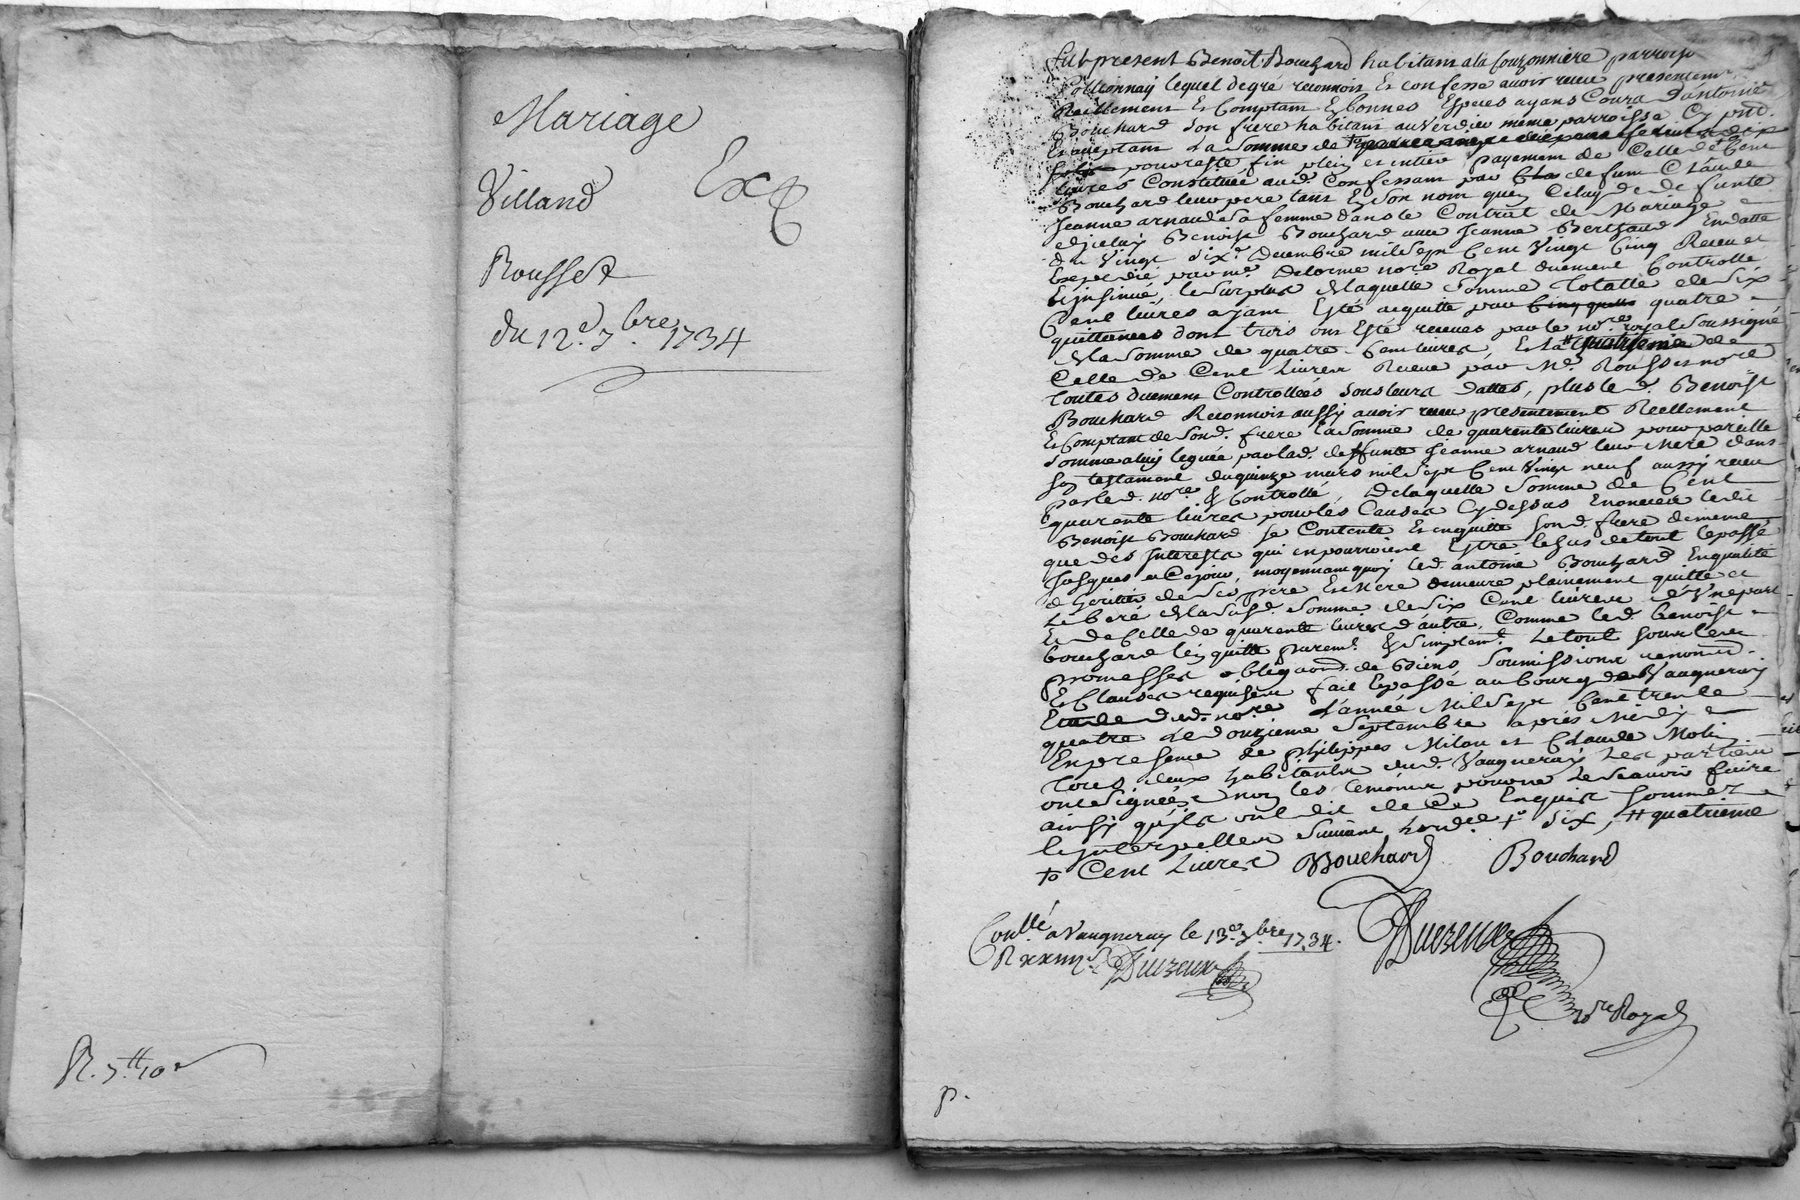 Mariage
Villand
Exp
Rousset
du 12.e 7.bre 1734
R. 7.tt 10 s
fut present Benoit Bouchard habitant a la Couzonniere parroisse
Pollionnay lequel de gré reconnoit et confesse avoir receu presentement
Reellement et Comptant En bonnes Especes ayant Cours d'antoine
Bouchard son frere habitant au Verdieu même parroisse Cy pnt.
Et acceptant La somme de
pour reste fin plein et entier payement de Celle de Cent
livres Constituée aud. Confessant par defunt Claude
Bouchard leur pere tant En son nom que Celuy de defunte
Jeanne arnaud sa femme dans le Contrat de Mariage
diceluy Benoist Bouchard avec Jeanne Berthaud En datte
du Vingt six.e Decembre mil sept Cent Vingt Cinq Receu et
Expedié par me. Delorme nore Royal duement Controllé
Et insinué, le surplus de laquelle somme Totalle de six
Cent livres ayant Esté acquitté par quatre
quittances dont trois ont Esté receues par le nore. royal soussigné
de la somme de quatre Cent livres, Et la
Celle de Cent Livres Receue par Me. Rousset nore
Toutes duement Controllées sous leurs dattes, plus le d. Benoist
Bouchard Reconnoit aussy avoir receu presentement Reellement
Et Comptant de Sond. frere la somme de quarente livres pour pareille
somme a luy leguée par lad. deffunte Jeanne arnaud leur Mere dans
son testament du quinze mars mil sept Cent Vingt neuf aussy receu
par led. nore. & Controllé, De laquelle somme de Cent
quarente livres pour les Causes Cy dessus Enoncées ledit
Benoist Bouchard se Contente Et en quitte Sond. frere de meme
que des Interests qui en pourroient Estre leSus de tout le passé
Jusques a Ce jour, moyennant quoy led. antoine Bouchard En qualité
d'heritier de Ses pere Et Mere demeure plainement quitte et
Liberé de la susd. somme de six Cent livres d'Une part
Et de Celle de quarente livres d'autre, Comme led. benoist
bouchard l'en quitte purem.t & simplem.t Le tout sous leurs
promesses obligaons. de Biens, Soumissions renonciô.
Et Clauses requises fait Et passé au bourg de Vaugneray
Etude dud. nore. L'année Mil Sept Cent trente
quatre Le douzieme Septembre après Midy
En presence de philippes Milan et Claude Molin
Tous deux habitants dud. Vaugneray les parties
ont signées non les temoins pour ne le sçavoir faire
ainsy quils ont dit de Ce Enquis sommez
Et interpellez suivant Lordce + six, # quatrieme
+ Cent Livres Bouchard Bouchard
Conllé a Vaugneray le 13.e 7.bre 1734.
R xxiiij s. Duvzeux
Duvzeux
nore Royal
p.